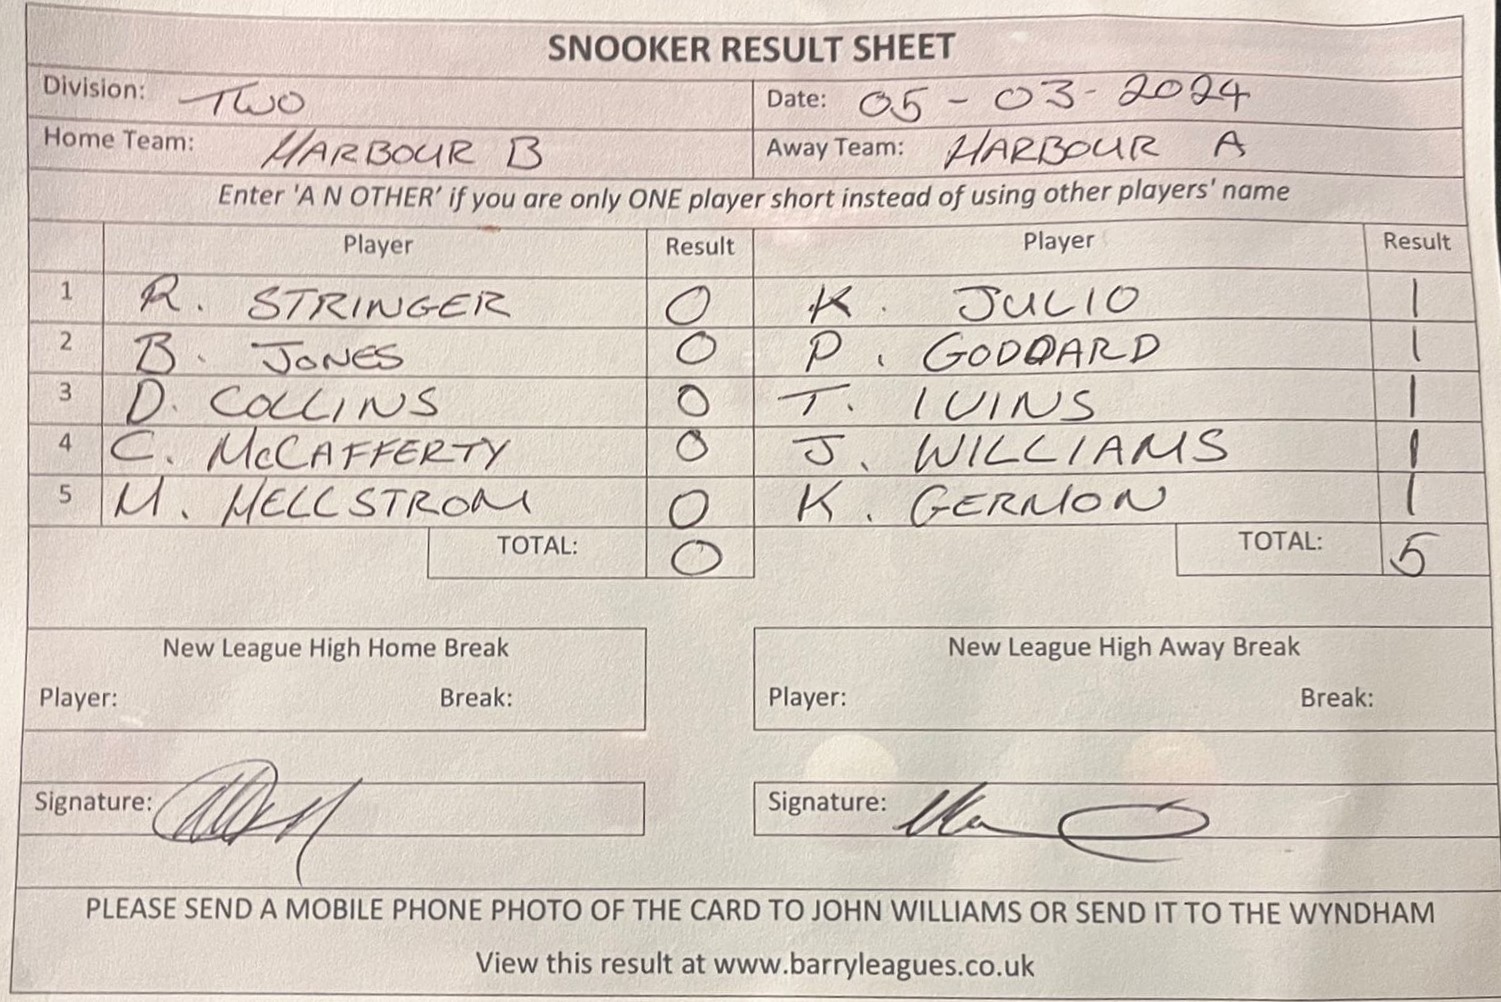 SNOOKER RESULT SHEET
Division: TWO Date: 05-03-2024
Home Team: HARBOUR B Away Team: HARBOUR A
Enter 'A N OTHER' if you are only ONE player short instead of using other players' name
Player Result Player Result
1 R. STRINGER 0 K. JULIO 1
2 B. JONES 0 P. GODDARD 1
3 D. COLLINS 0 T. IVINS 1
4 C. McCAFFERTY 0 J. WILLIAMS 1
5 M. HELLSTROM 0 K. GERMON 1
TOTAL: 0 TOTAL: 5
New League High Home Break New League High Away Break
Player: Break: Player: Break:
Signature: Signature:
PLEASE SEND A MOBILE PHONE PHOTO OF THE CARD TO JOHN WILLIAMS OR SEND IT TO THE WYNDHAM
View this result at www.barryleagues.co.uk